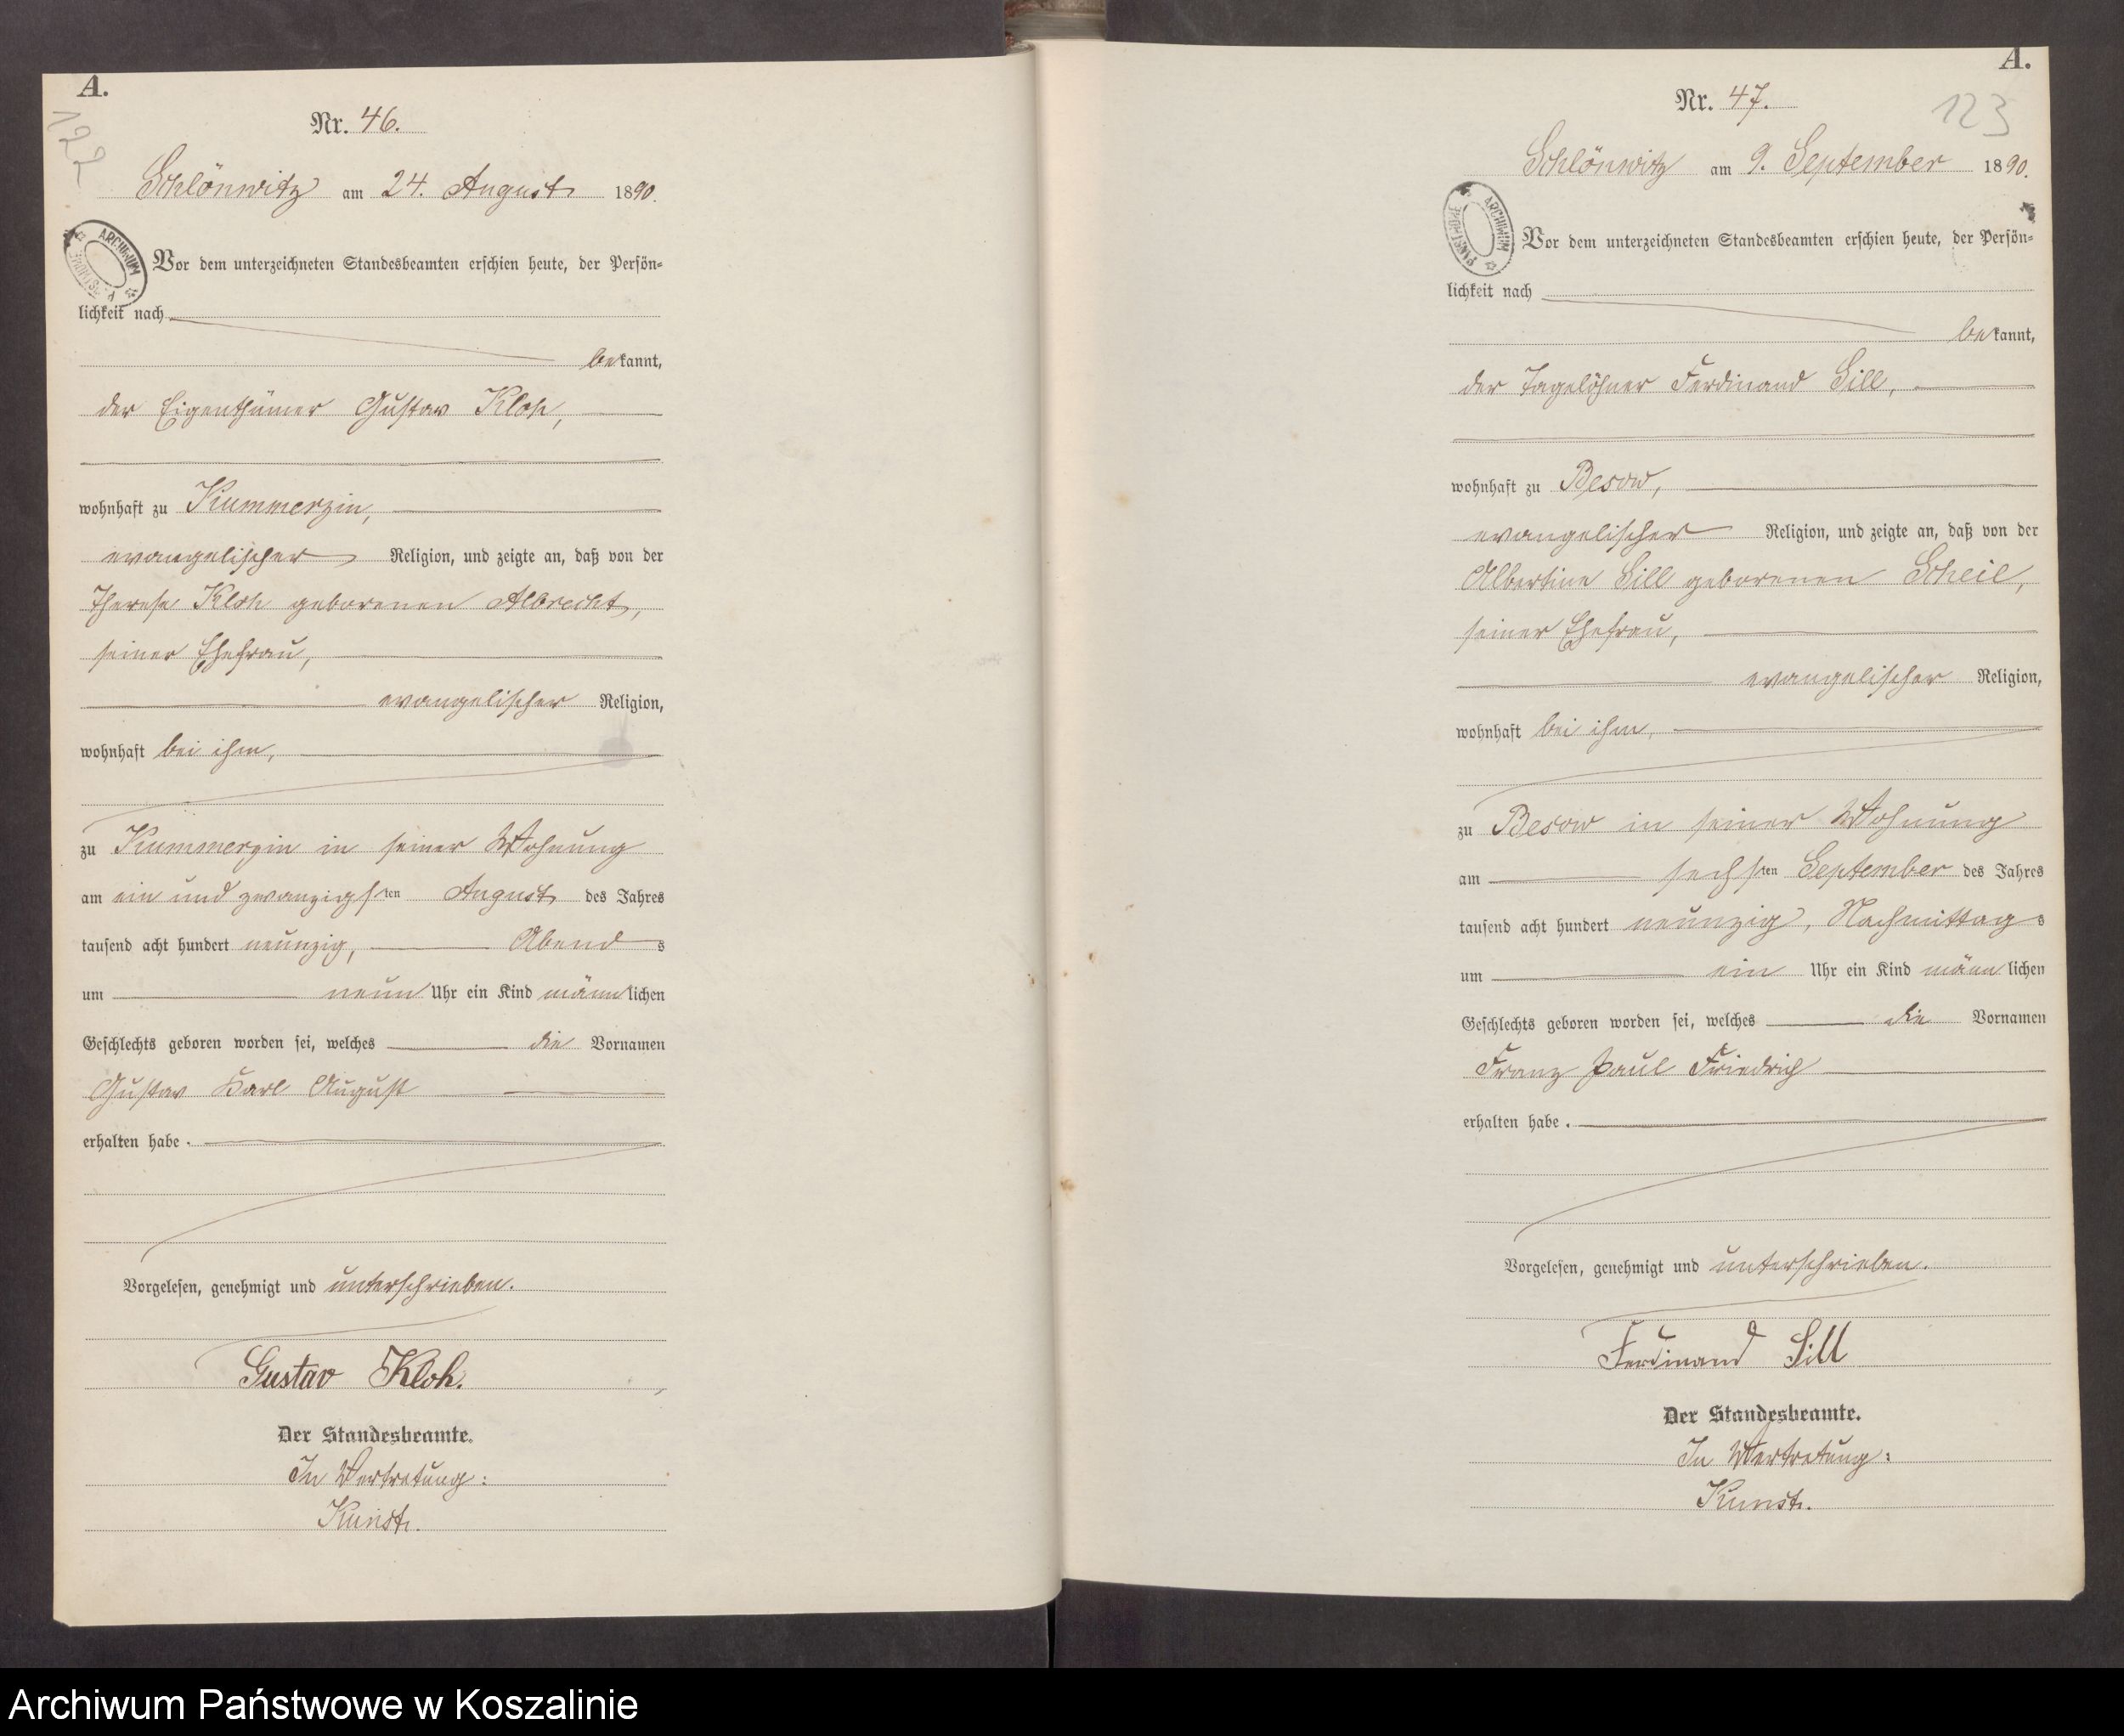 A.
122
Nr. 46.
Schlönwitz am 24. August 1890.
ARCHIWUM PAŃSTWOWE
Vor dem unterzeichneten Standesbeamten erschien heute, der Persön=
lichkeit nach
bekannt,
der Eigenthümer Gustav Kloh,
wohnhaft zu Kummerzin,
evangelischer Religion, und zeigte an, daß von der
Therese Kloh geborenen Albrecht,
seiner Ehefrau,
evangelischer Religion,
wohnhaft bei ihm,
zu Kummerzin in seiner Wohnung
am ein und zwanzigsten August des Jahres
tausend acht hundert neunzig, Abends
um neun Uhr ein Kind männlichen
Geschlechts geboren worden sei, welches die Vornamen
Gustav Karl August
erhalten habe.
Vorgelesen, genehmigt und unterschrieben.
Gustav Kloh.
Der Standesbeamte.
In Vertretung:
Kunst.
A.
123
Nr. 47.
Schlönwitz am 9. September 1890.
ARCHIWUM PAŃSTWOWE
Vor dem unterzeichneten Standesbeamten erschien heute, der Persön=
lichkeit nach
bekannt,
der Tagelöhner Ferdinand Sill,
wohnhaft zu Besow,
evangelischer Religion, und zeigte an, daß von der
Albertine Sill geborenen Scheil,
seiner Ehefrau,
evangelischer Religion,
wohnhaft bei ihm,
zu Besow in seiner Wohnung
am sechsten September des Jahres
tausend acht hundert neunzig, Nachmittags
um ein Uhr ein Kind männlichen
Geschlechts geboren worden sei, welches die Vornamen
Franz Paul Friedrich
erhalten habe.
Vorgelesen, genehmigt und unterschrieben.
Ferdinand Sill
Der Standesbeamte.
In Vertretung:
Kunst.
Archiwum Państwowe w Koszalinie